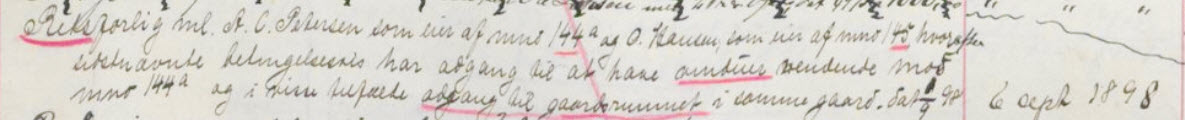 Retsforlig ml. A. C. Petersen som eier af mno 144a og O. Hansen, som eier af mno 145 hvorefter
sidstnævnte betingelsesvis har adgang til at have vinduer vendende mod
mno 144a og i visse tilfælde adgang til gaardsrummet i samme gaard. Dat 98 6 sept 1898